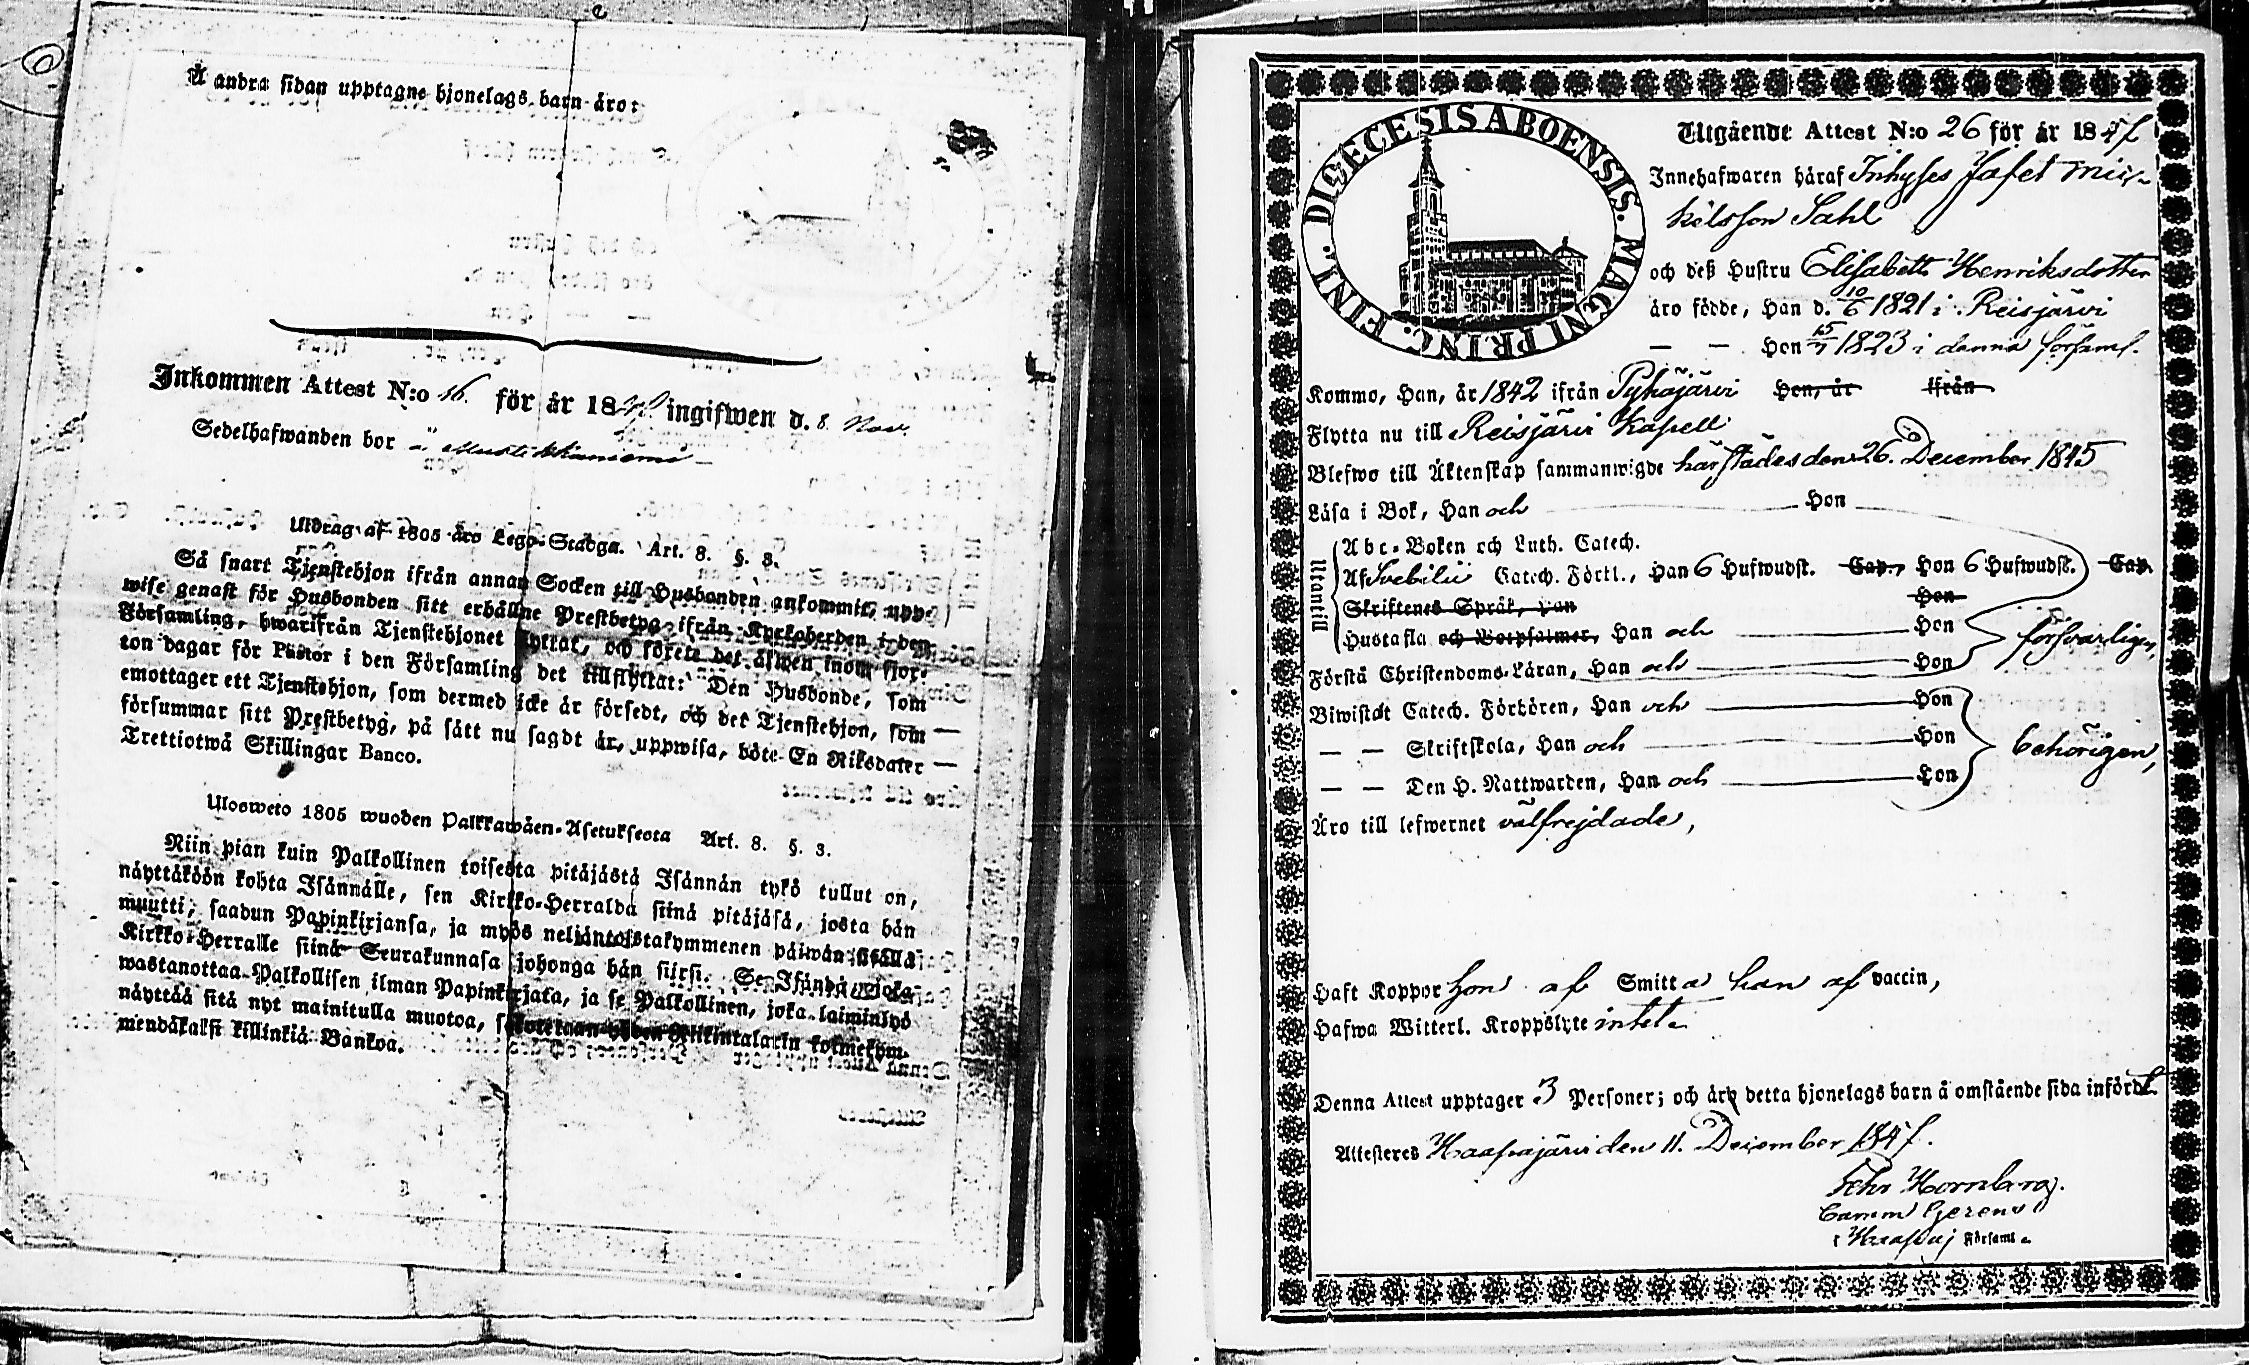 Å andra sidan upptagne hjonelags barn äro:
Inkommen Attest N:o 16. för år 18 ingifwen d. 8. Nov.
Sedelhafwanden bor å
Utdrag af 1805 års Lego-Stadga. Art. 8. §. 3.
Så snart Tjenstehjon ifrån annan Socken till Husbonden ankommit, upp-
wise genast för Husbonden sitt erhållne Prestbetyg ifrån Kyrkoherden i den
Församling, hwarifrån Tjenstehjonet flyttat, och förete det äfwen inom fjor-
ton dagar för Pastor i den Församling det tillflyttat: Den Husbonde, som
emottager ett Tjenstehjon, som dermed icke är försedt, och det Tjenstehjon, som
försummar sitt Prestbetyg, på sätt nu sagdt är, uppwisa, böte En Riksdaler
Trettiotwå Skillingar Banco.
Ulosweto 1805 wuoden Palkkawäen-Asetuksesta Art. 8. §. 3.
Niin pian kuin Palkollinen toisesta pitäjästä Isännän tykö tullut on,
näyttäköön kohta Isännälle, sen Kirkko-Herralda siinä pitäjäsä, josta hän
muutti, saadun Papinkirjansa, ja myös neljäntoistakymmenen päiwän sisällä
Kirkko-Herralle siinä Seurakunnasa johonga hän siirsi. Se Isändä, joka
wastanottaa Palkollisen ilman Papinkirjata, ja se Palkollinen, joka laiminlyö
näyttää sitä nyt mainitulla muotoa, sakotetaan yhden Riikintalarin kolmekym-
mendäkaksi killinkiä Bankoa.
DIŒCESIS ABOENSIS. MAGNI PRINC. FINL.
Utgående Attest N:o 26 för år 1847
Innehafwaren häraf Inhyses Jafet Mic-
kelsson Sahl
och deß Hustru Elisabetta Henriksdotter
äro födde, Han d. 10/6 1821 i Reisjärvi
— — Hon 15/7 1823 i denna församl.
Kommo, Han, år 1842 ifrån Pyhäjärvi Hon, år ifrån
Flytta nu till Reisjärvi Kapell
Blefwo till Äktenskap sammanwigde härstädes den 26. December 1845
Läsa i Bok, Han och Hon
Utantill
Abc-Boken och Luth. Catech.
Af Svebilii Catech. Förkl., Han 6 Hufwudst. Cap., Hon 6 Hufwudst. Cap.
Skriftenes Språk, Han Hon
Hustafla och Botpsalmer, Han och Hon försvarligen,
Förstå Christendoms-Läran, Han och Hon
Biwistat Catech. Förhören, Han och Hon
— — Skriftskola, Han och Hon behörigen,
— — Den H. Nattwarden, Han och Hon
Äro till lefwernet välfrejdade,
Haft Koppor hon af Smitta han af vaccin,
Hafwa Witterl. Kroppslyte intet
Denna Attest upptager 3 Personer; och äro detta hjonelags barn å omstående sida införde.
Attesteras Haapajärvi den 11. December 1847.
Joh. Hornborg.
Comm
i Haapaj Församl.